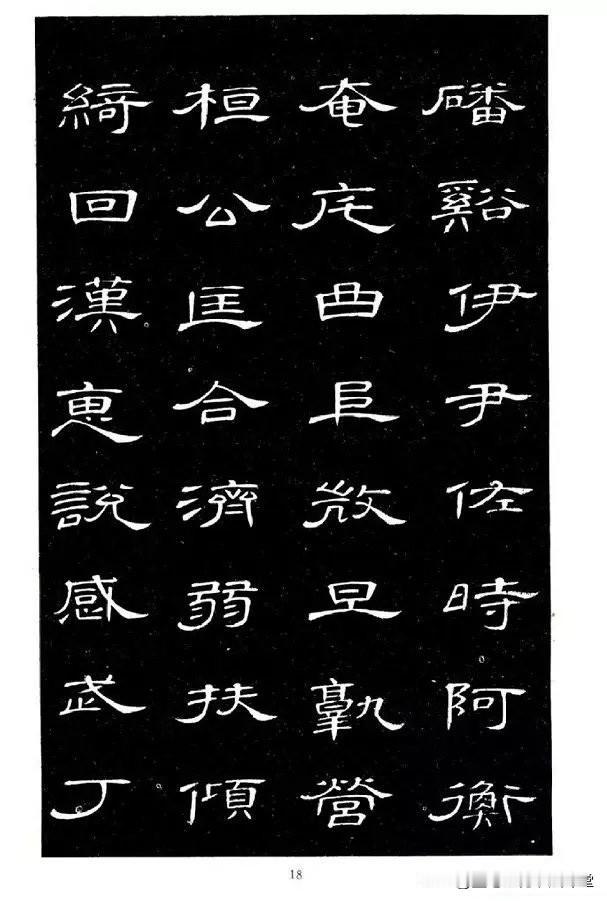 磻谿伊尹佐時阿衡
奄宅曲阜微旦孰營
桓公匡合濟弱扶傾
綺回漢惠說感武丁
18